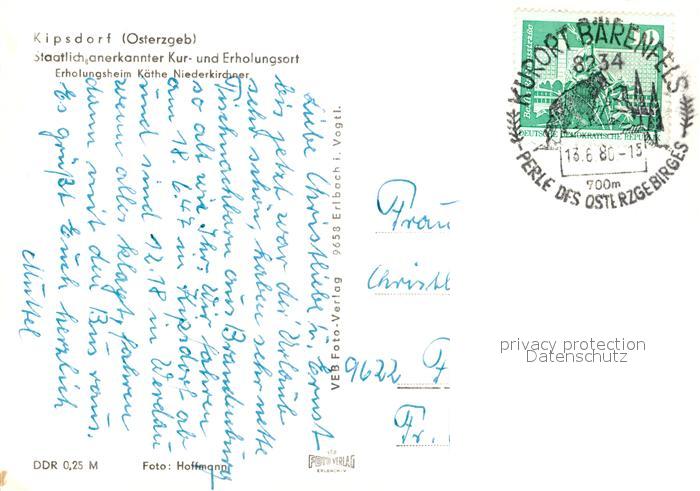 Kipsdorf (Osterzgeb)
Staatlich anerkannter Kur- und Erholungsort
Erholungsheim Käthe Niederkirchner
Liebe Christliebe u. Ernst
bis jetzt war der Urlaub
sehr schön, haben sehr nette
Tischnachbarn aus Brandenburg
so alt wie Ihr. Wir fahren
am 18.6.47 in Kipsdorf ab
und sind 12.18 in Werdau
wenn alles klappt, fahren
dann mit den Bus raus.
Es grüßt Euch herzlich
Muttel
DDR 0,25 M
Foto: Hoffmann
VEB Foto-Verlag 9658 Erlbach i. Vogtl.
FOTO VERLAG
ERLBACH-V
KURORT BÄRENFELS
8234
DEUTSCHE DEMOKRATISCHE REPUBLIK
13.6.80-15
700m
PERLE DES OSTERZGEBIRGES
Frau
Christl
9622 F
Fr.
privacy protection
Datenschutz